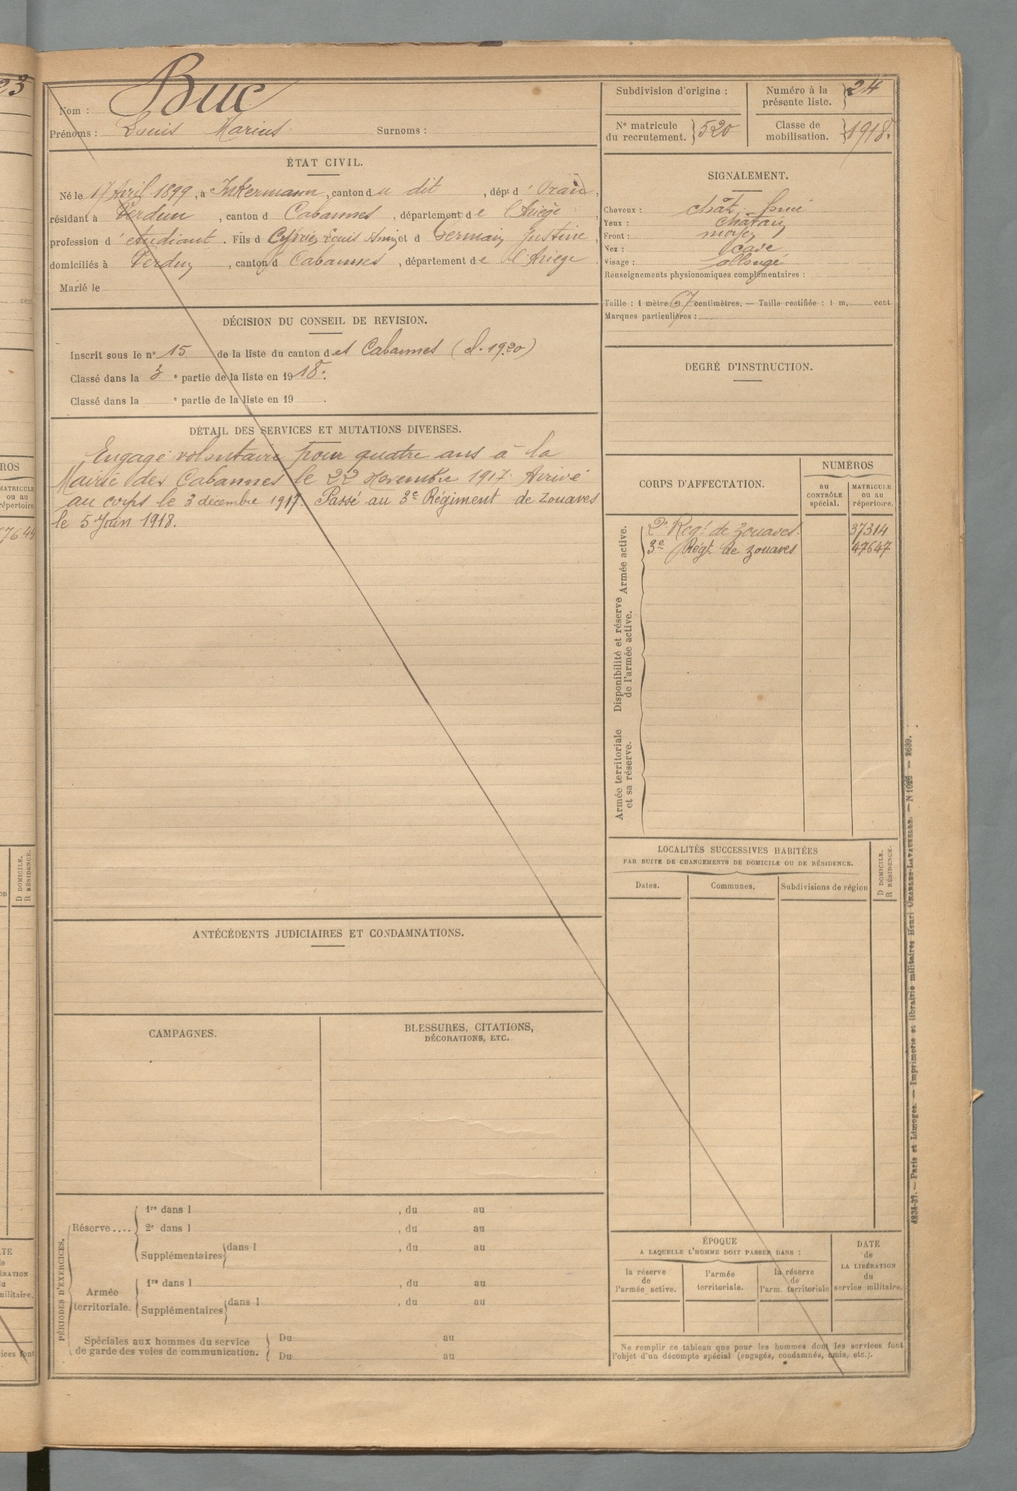 23
Nom : Buc
Prénoms : Louis Marius Surnoms :
Subdivision d'origine :
Numéro à la présente liste. } 24
N° matricule du recrutement. } 520
Classe de mobilisation. } 1918.
ÉTAT CIVIL.
Né le 17 Avril 1899, à Inkermann, canton du dit, dépt d'Oran,
résidant à Verdun, canton d Cabannes, département de l'Ariège,
profession d'étudiant. Fils d Louis et d Germain Justine,
domiciliés à Verdun, canton d Cabannes, département de l'Ariège
Marié le
SIGNALEMENT.
Cheveux : chât.
Yeux : châtain
Front : moyen
Nez : cave
Visage : allongé
Renseignements physionomiques complémentaires :
Taille : 1 mètre 67 centimètres. — Taille rectifiée : 1 m, cent.
Marques particulières :
DÉCISION DU CONSEIL DE REVISION.
Inscrit sous le n° 15 de la liste du canton des Cabannes (cl. 1920)
Classé dans la 3e partie de la liste en 1918.
Classé dans la e partie de la liste en 19 .
DEGRÉ D'INSTRUCTION.
DÉTAIL DES SERVICES ET MUTATIONS DIVERSES.
Engagé volontaire pour quatre ans à la
Mairie des Cabannes le 22 novembre 1917. Arrivé
au corps le 3 décembre 1917. Passé au 3e Régiment de Zouaves
le 5 Juin 1918.
CORPS D'AFFECTATION.
NUMÉROS
AU CONTRÔLE spécial.
MATRICULE ou au répertoire.
Armée active.
2e Régt de zouaves. 37314
3e Régt de zouaves 47647
Disponibilité et réserve de l'armée active.
Armée territoriale et sa réserve.
LOCALITÉS SUCCESSIVES HABITÉES
PAR SUITE DE CHANGEMENTS DE DOMICILE OU DE RÉSIDENCE.
Dates. Communes. Subdivisions de région
D DOMICILE.
R RÉSIDENCE.
ANTÉCÉDENTS JUDICIAIRES ET CONDAMNATIONS.
CAMPAGNES.
BLESSURES, CITATIONS,
DÉCORATIONS, ETC.
PÉRIODES D'EXERCICES.
Réserve....
1re dans l , du au
2e dans l , du au
Supplémentaires dans l , du au
Armée territoriale.
1re dans l , du au
Supplémentaires dans l , du au
Spéciales aux hommes du service
de garde des voies de communication.
Du au
Du au
ÉPOQUE
A LAQUELLE L'HOMME DOIT PASSER DANS :
la réserve de l'armée active.
l'armée territoriale.
la réserve de l'arm. territoriale
DATE de LA LIBÉRATION du service militaire.
Ne remplir ce tableau que pour les hommes dont les services font
l'objet d'un décompte spécial (engagés, condamnés, omis, etc.).
Paris et Limoges. — Imprimerie et librairie militaires Henri Charles-Lavauzelle.